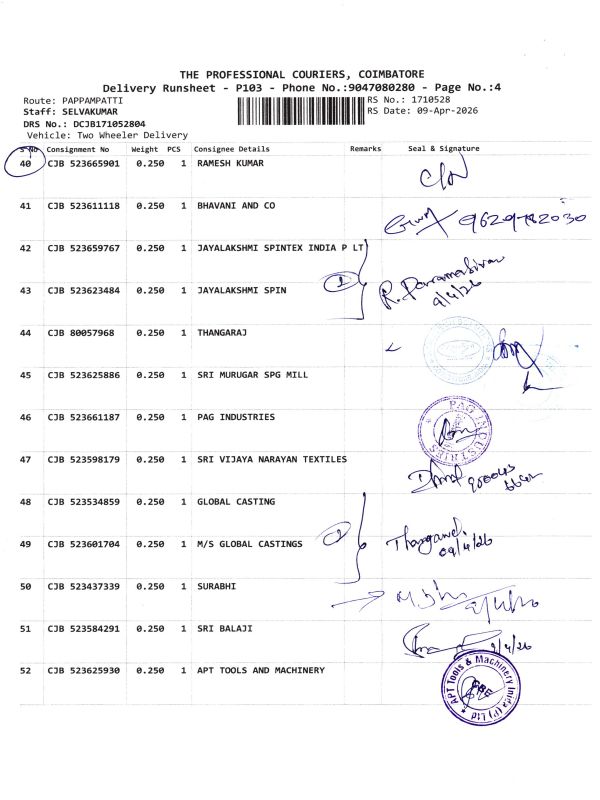 THE PROFESSIONAL COURIERS, COIMBATORE
Delivery Runsheet - P103 - Phone No.:9047080280 - Page No.:4
Route: PAPPAMPATTI RS No.: 1710528
Staff: SELVAKUMAR RS Date: 09-Apr-2026
DRS No.: DCJB171052804
Vehicle: Two Wheeler Delivery
S No Consignment No Weight PCS Consignee Details Remarks Seal & Signature
40 CJB 523665901 0.250 1 RAMESH KUMAR
41 CJB 523611118 0.250 1 BHAVANI AND CO
42 CJB 523659767 0.250 1 JAYALAKSHMI SPINTEX INDIA P LT
43 CJB 523623484 0.250 1 JAYALAKSHMI SPIN
R. Paramasivan
9/4/26
44 CJB 80057968 0.250 1 THANGARAJ
45 CJB 523625886 0.250 1 SRI MURUGAR SPG MILL
46 CJB 523661187 0.250 1 PAG INDUSTRIES
PAG INDUSTRIES
47 CJB 523598179 0.250 1 SRI VIJAYA NARAYAN TEXTILES
48 CJB 523534859 0.250 1 GLOBAL CASTING
49 CJB 523601704 0.250 1 M/S GLOBAL CASTINGS
09/4/26
50 CJB 523437339 0.250 1 SURABHI
51 CJB 523584291 0.250 1 SRI BALAJI
9/4/26
52 CJB 523625930 0.250 1 APT TOOLS AND MACHINERY
APT Tools & Machinery India (P) Ltd
CBE